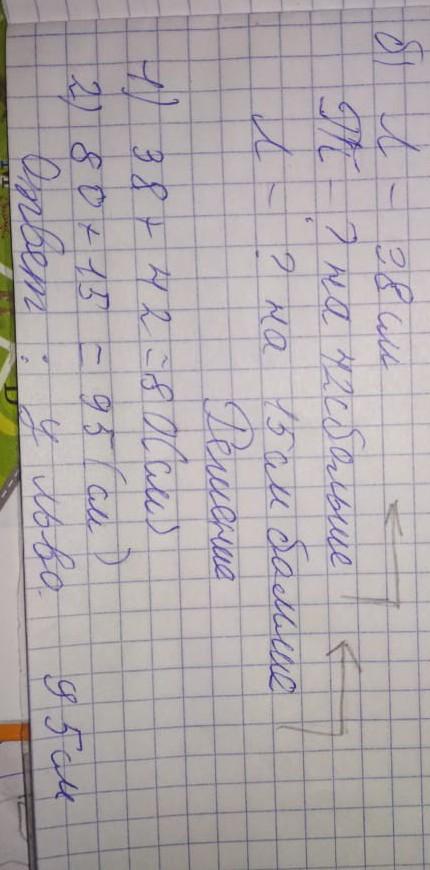 б) Л - 38 см
Т - ? на 42с больше
Л - ? на 15 см больше
Решение
1) 38 + 42 = 80(см)
2) 80 + 15 = 95 (см)
Ответ : у льва 95 см